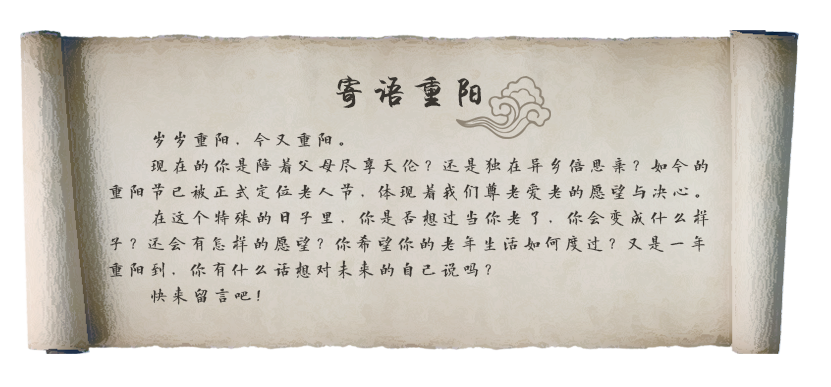 寄语重阳
岁岁重阳，今又重阳。
现在的你是陪着父母尽享天伦？还是独在异乡倍思亲？如今的
重阳节已被正式定位老人节，体现着我们尊老爱老的愿望与决心。
在这个特殊的日子里，你是否想过当你老了，你会变成什么样
子？还会有怎样的愿望？你希望你的老年生活如何度过？又是一年
重阳到，你有什么话想对未来的自己说吗？
快来留言吧！